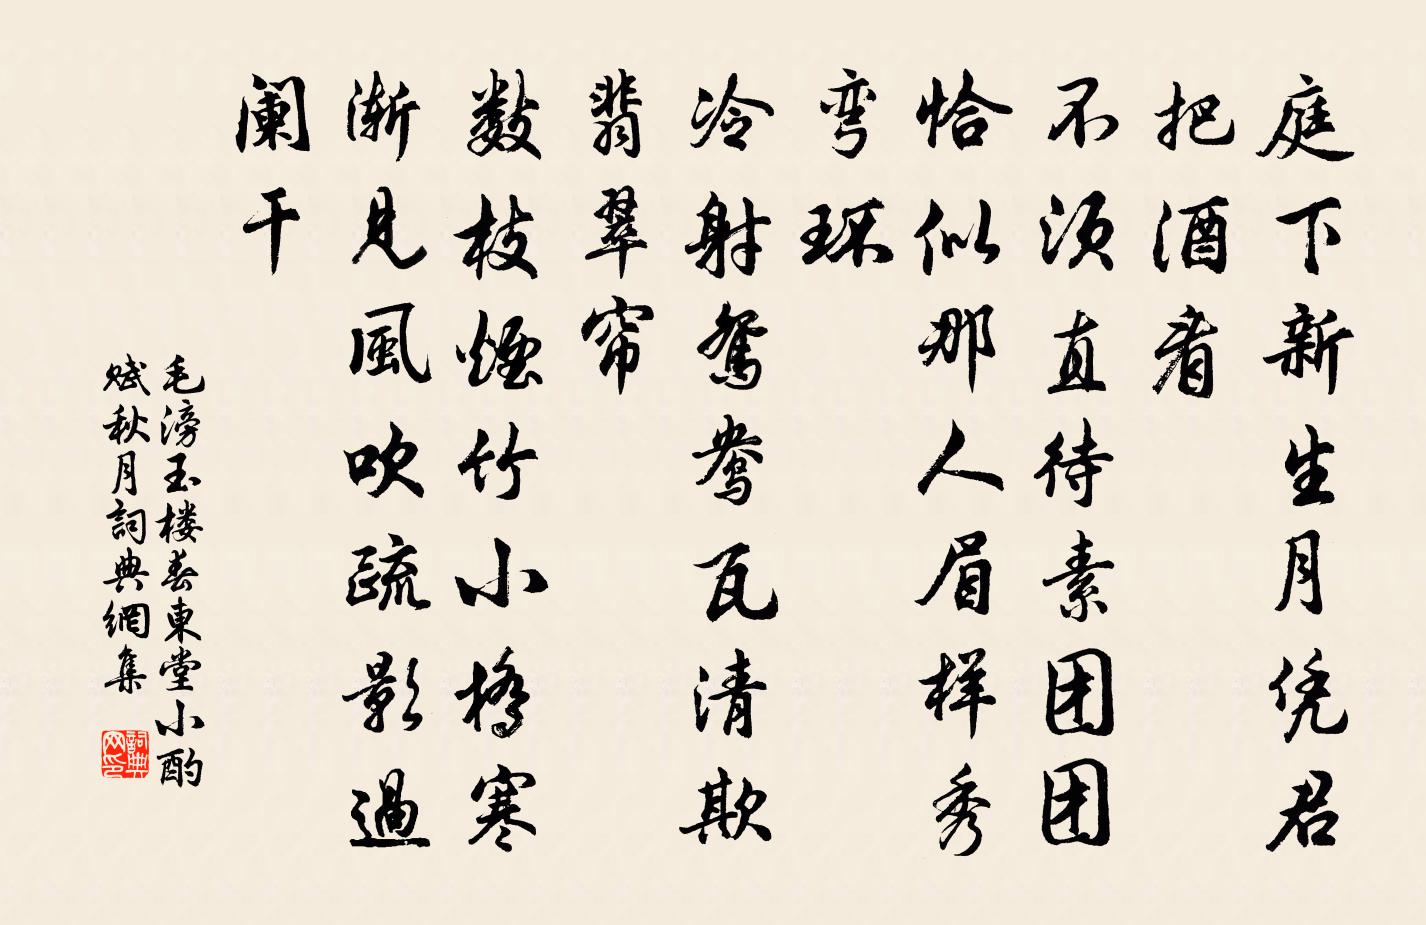 庭下新生月凭君
把酒看
不须直待素团团
恰似那人眉样秀
弯环
冷射鸳鸯瓦清欺
翡翠帘
数枝煙竹小橋寒
渐見風吹疏影過
阑干
毛滂玉楼春東堂小酌
赋秋月詞典網集
詞典
网印